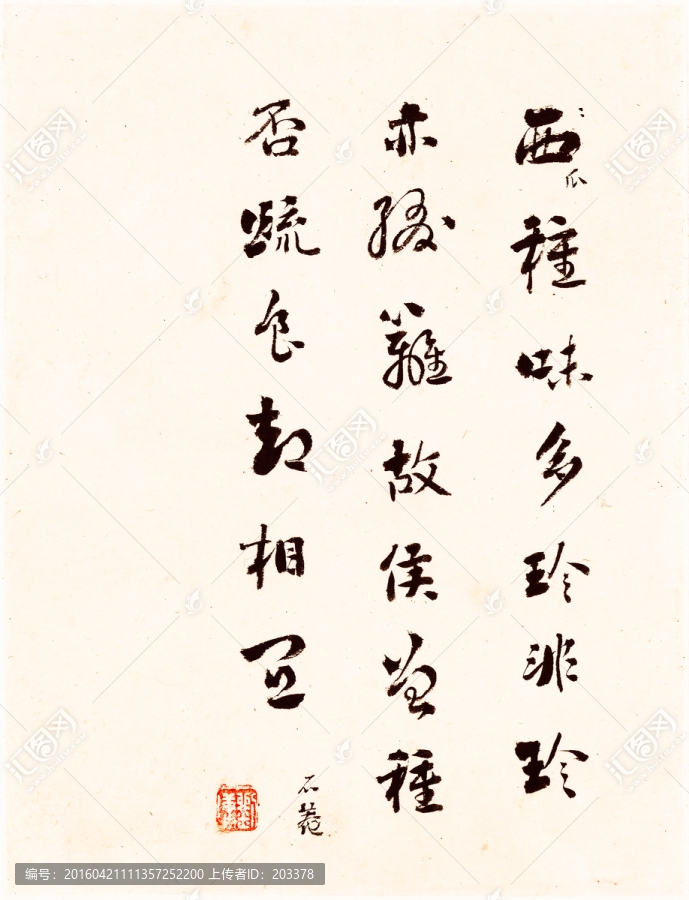 西瓜種味多珍非珍
亦綴籬故侯曾種
否疏食却相宜
石菴
汇图网
编号:20160421111357252200 上传者ID:203378